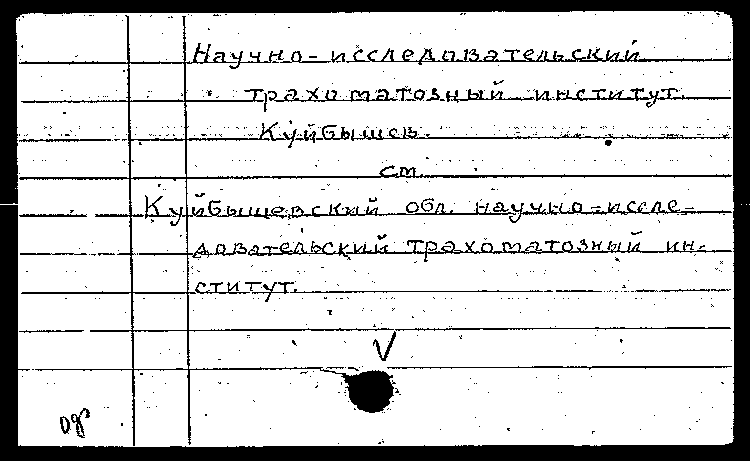 Научно-исследовательский
трахоматозный институт.
Куйбышев.
см.
Куйбышевский обл. научно-иссле-
довательский трахоматозный ин-
ститут.
V